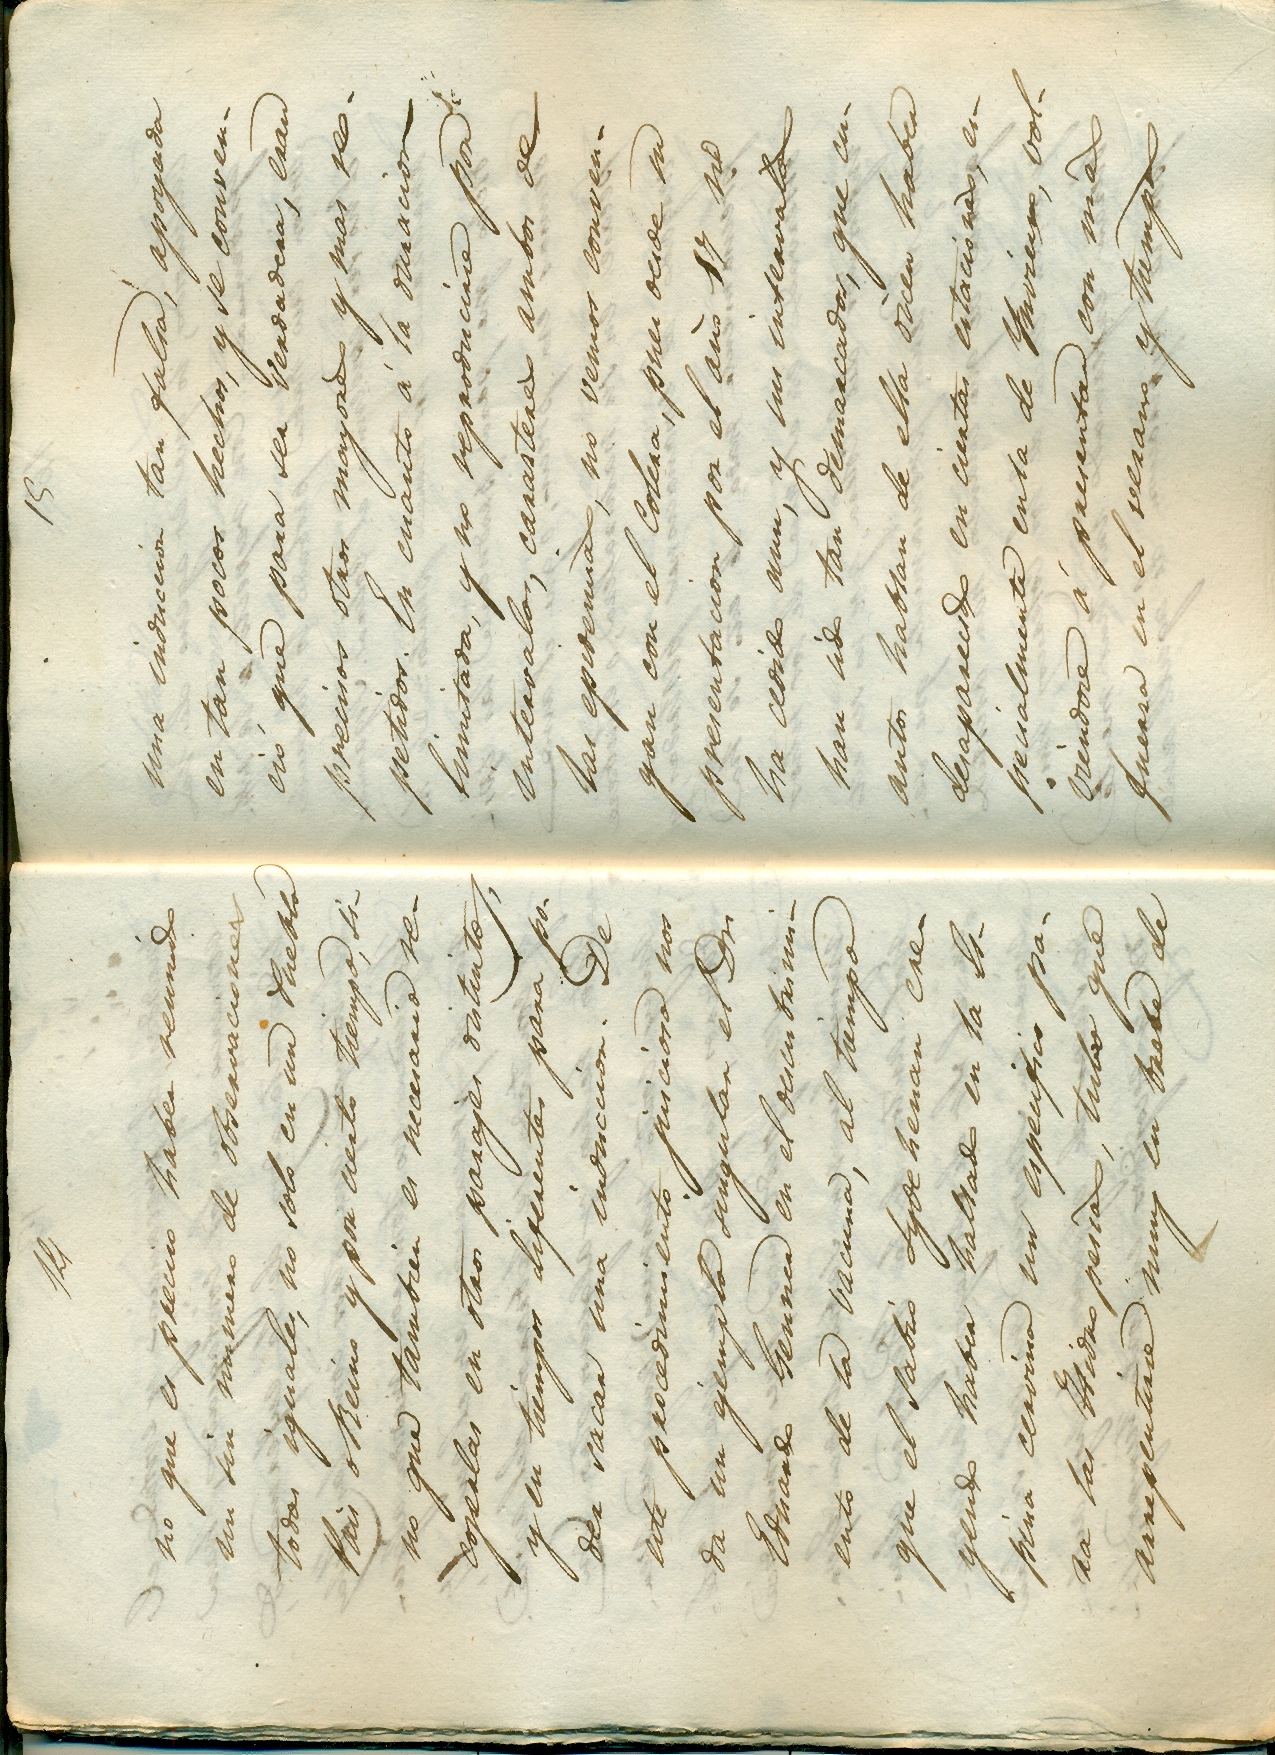 14
no que es preciso haber reunido
un sin numero de observaciones
todas iguales, no solo en un Pueblo
Pais o Reino y por cierto tiempo, si-
no que tambien es necesario re-
cogerlas en otros parajes distintos,
y en tiempos diferentes para po-
der sacar una induccion. De
este procedimiento juicioso nos
da un ejemplo singular el Dr
Eduardo Genner en el descubrimi-
ento de la vacuna, al tiempo
que el sabio Sydehenan cre-
yendo haber hallado en la Es-
pina cervina un especifico pa-
ra las Hidropesias, tubo que
arrepentirse muy en breve de
15
una induccion tan falsa, apoyada
en tan pocos hechos, y se conven-
ció que para ser verdadera, eran
precisos otros mayores y mas re-
petidos. En cuanto á la duracion
limitada, y no reproducirse por
intervalos, carasteres ambos de
las epidemias, no vemos conven-
gan con el Colera, pues desde su
presentacion por el año 17 no
ha cedido aun, y sus intervalos
han sido tan demarcados, que cu-
antos hablan de ella dicen haber
desaparecido en ciertas estaciones, es-
pecialmente en la de Ynvierno, vol-
viendose á presentar con mas
fuerza en el verano, y tiempo